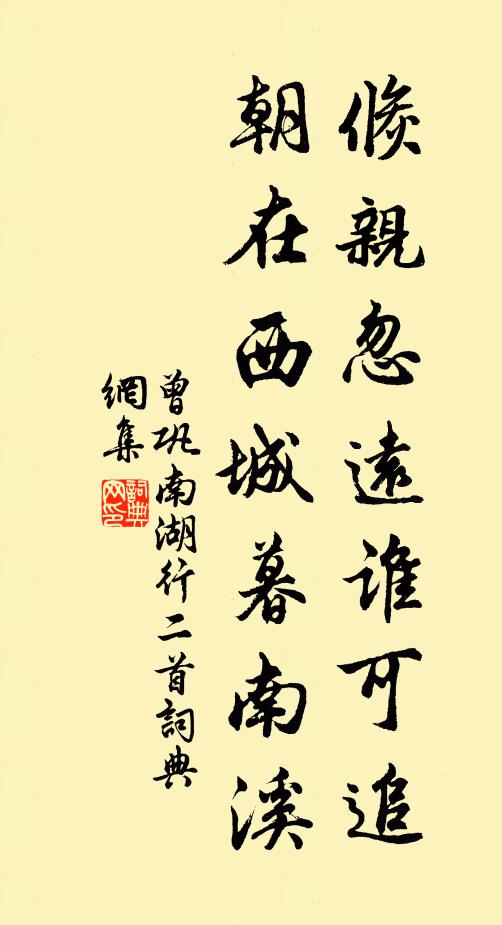 倐親忽遠誰可追
朝在西城暮南溪
曾巩南湖行二首詞典
網集
詞典
网印